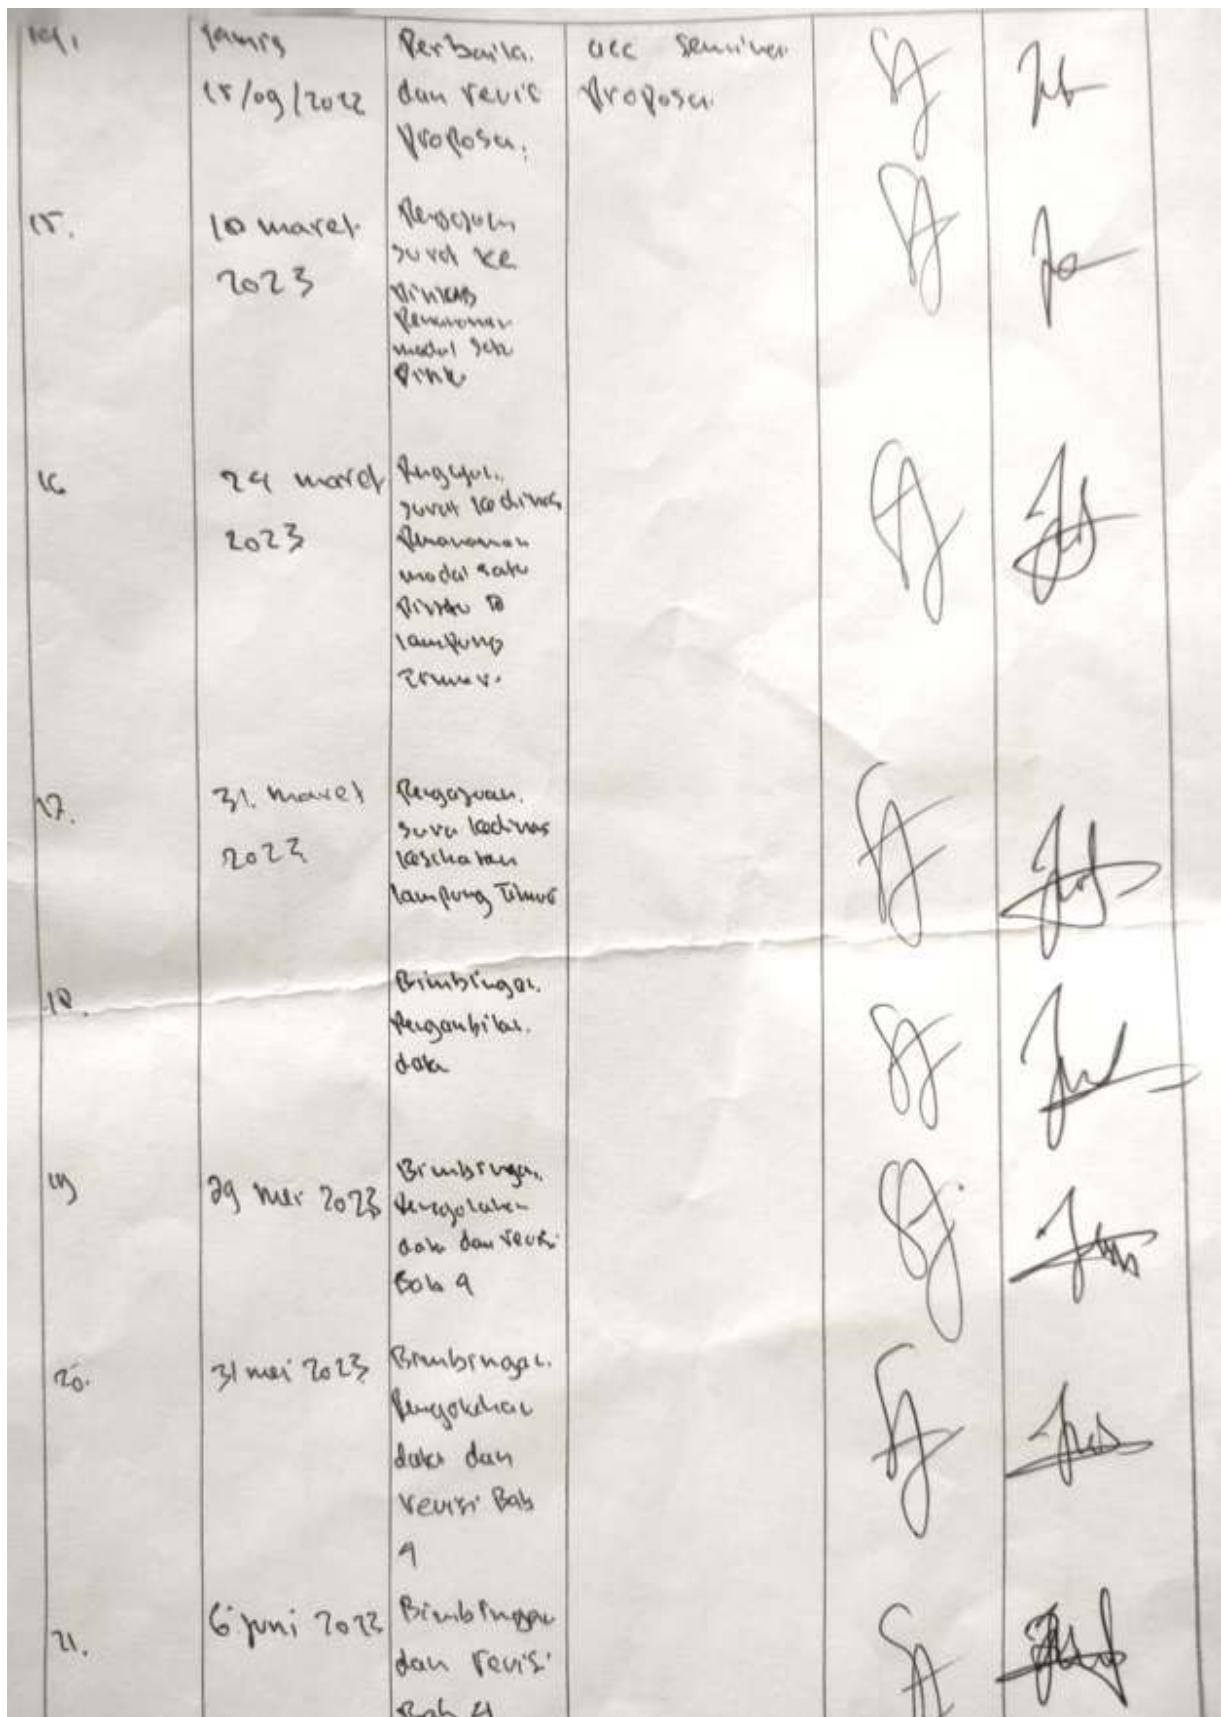 14. Kamis Perbaika. acc seminar
15/09/2022 dan revisi Proposa.
Proposa.
15. 10 maret Pengajuan
2023 surat ke
Dinkes
Penanaman
modal satu
Pintu
16 24 maret Pengajua.
2023 surat kedinas
Penanaman
modal satu
Pintu
lampung
Timur.
17. 31. maret Pengajuan.
2023 surat kedinas
kesehatan
lampung Timur
18. Bimbingan.
Pengambilan.
data
19 29 mei 2023 Bimbingan.
Pengolahan
data dan revisi
Bab 4
20. 31 mei 2023 Bimbingan.
Pengolahan
data dan
revisi Bab
4
21. 6 juni 2023 Bimbingan
dan revisi
Bab 4